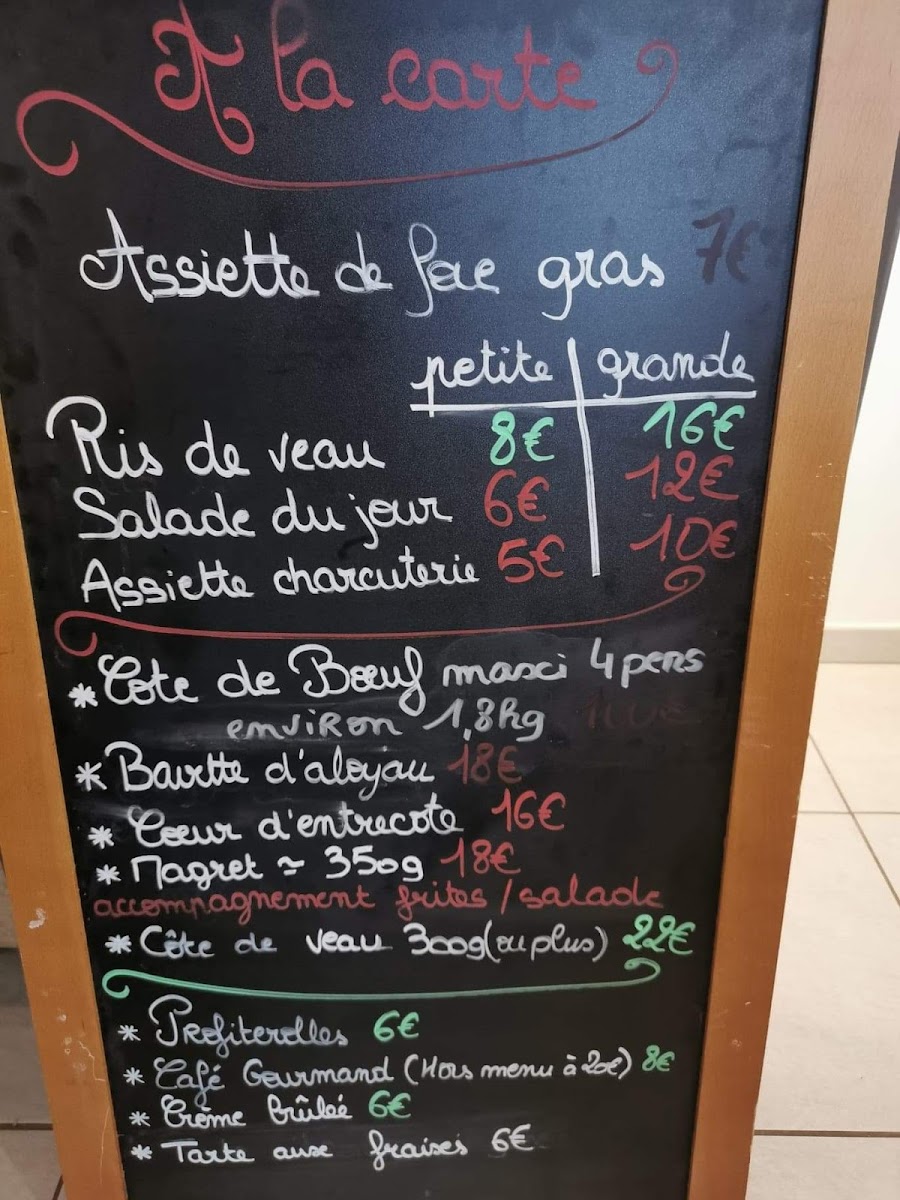 A la carte
Assiette de foie gras 7€
petite grande
Ris de veau 8€ 16€
Salade du jour 6€ 12€
Assiette charcuterie 5€ 10€
* Côte de Bœuf maxi 4 pers
environ 1,8kg 100€
* Bavette d'aloyau 18€
* Coeur d'entrecote 16€
* Magret ≃ 350g 18€
accompagnement frites / salade
* Côte de veau 300g (ou plus) 22€
* Profiterolles 6€
* Café Gourmand (Hors menu à 20€) 8€
* Crème brûlée 6€
* Tarte aux fraises 6€